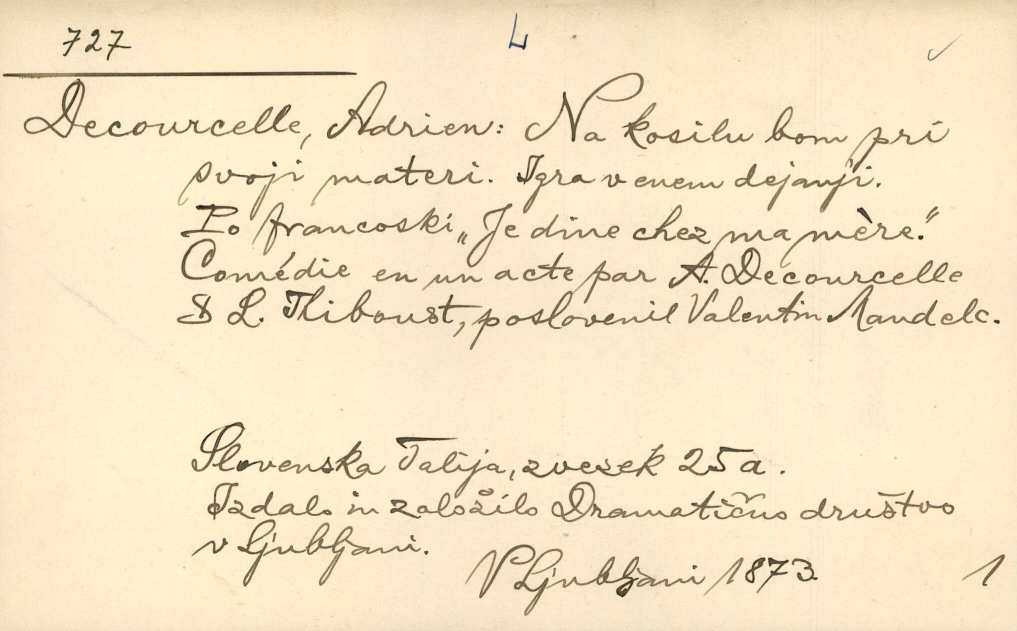 727 L ✓
Decourcelle, Adrien: Na kosilu bom pri
svoji materi. Igra v enem dejanji.
Po francoski „Je dine chez ma mère."
Comédie en un acte par A. Decourcelle
& L. Thiboust, poslovenil Valentin Mandelc.
Slovenska Talija, zvezek 25 a.
Izdalo in založilo Dramatično društvo
v Ljubljani.
V Ljubljani 1873. 1